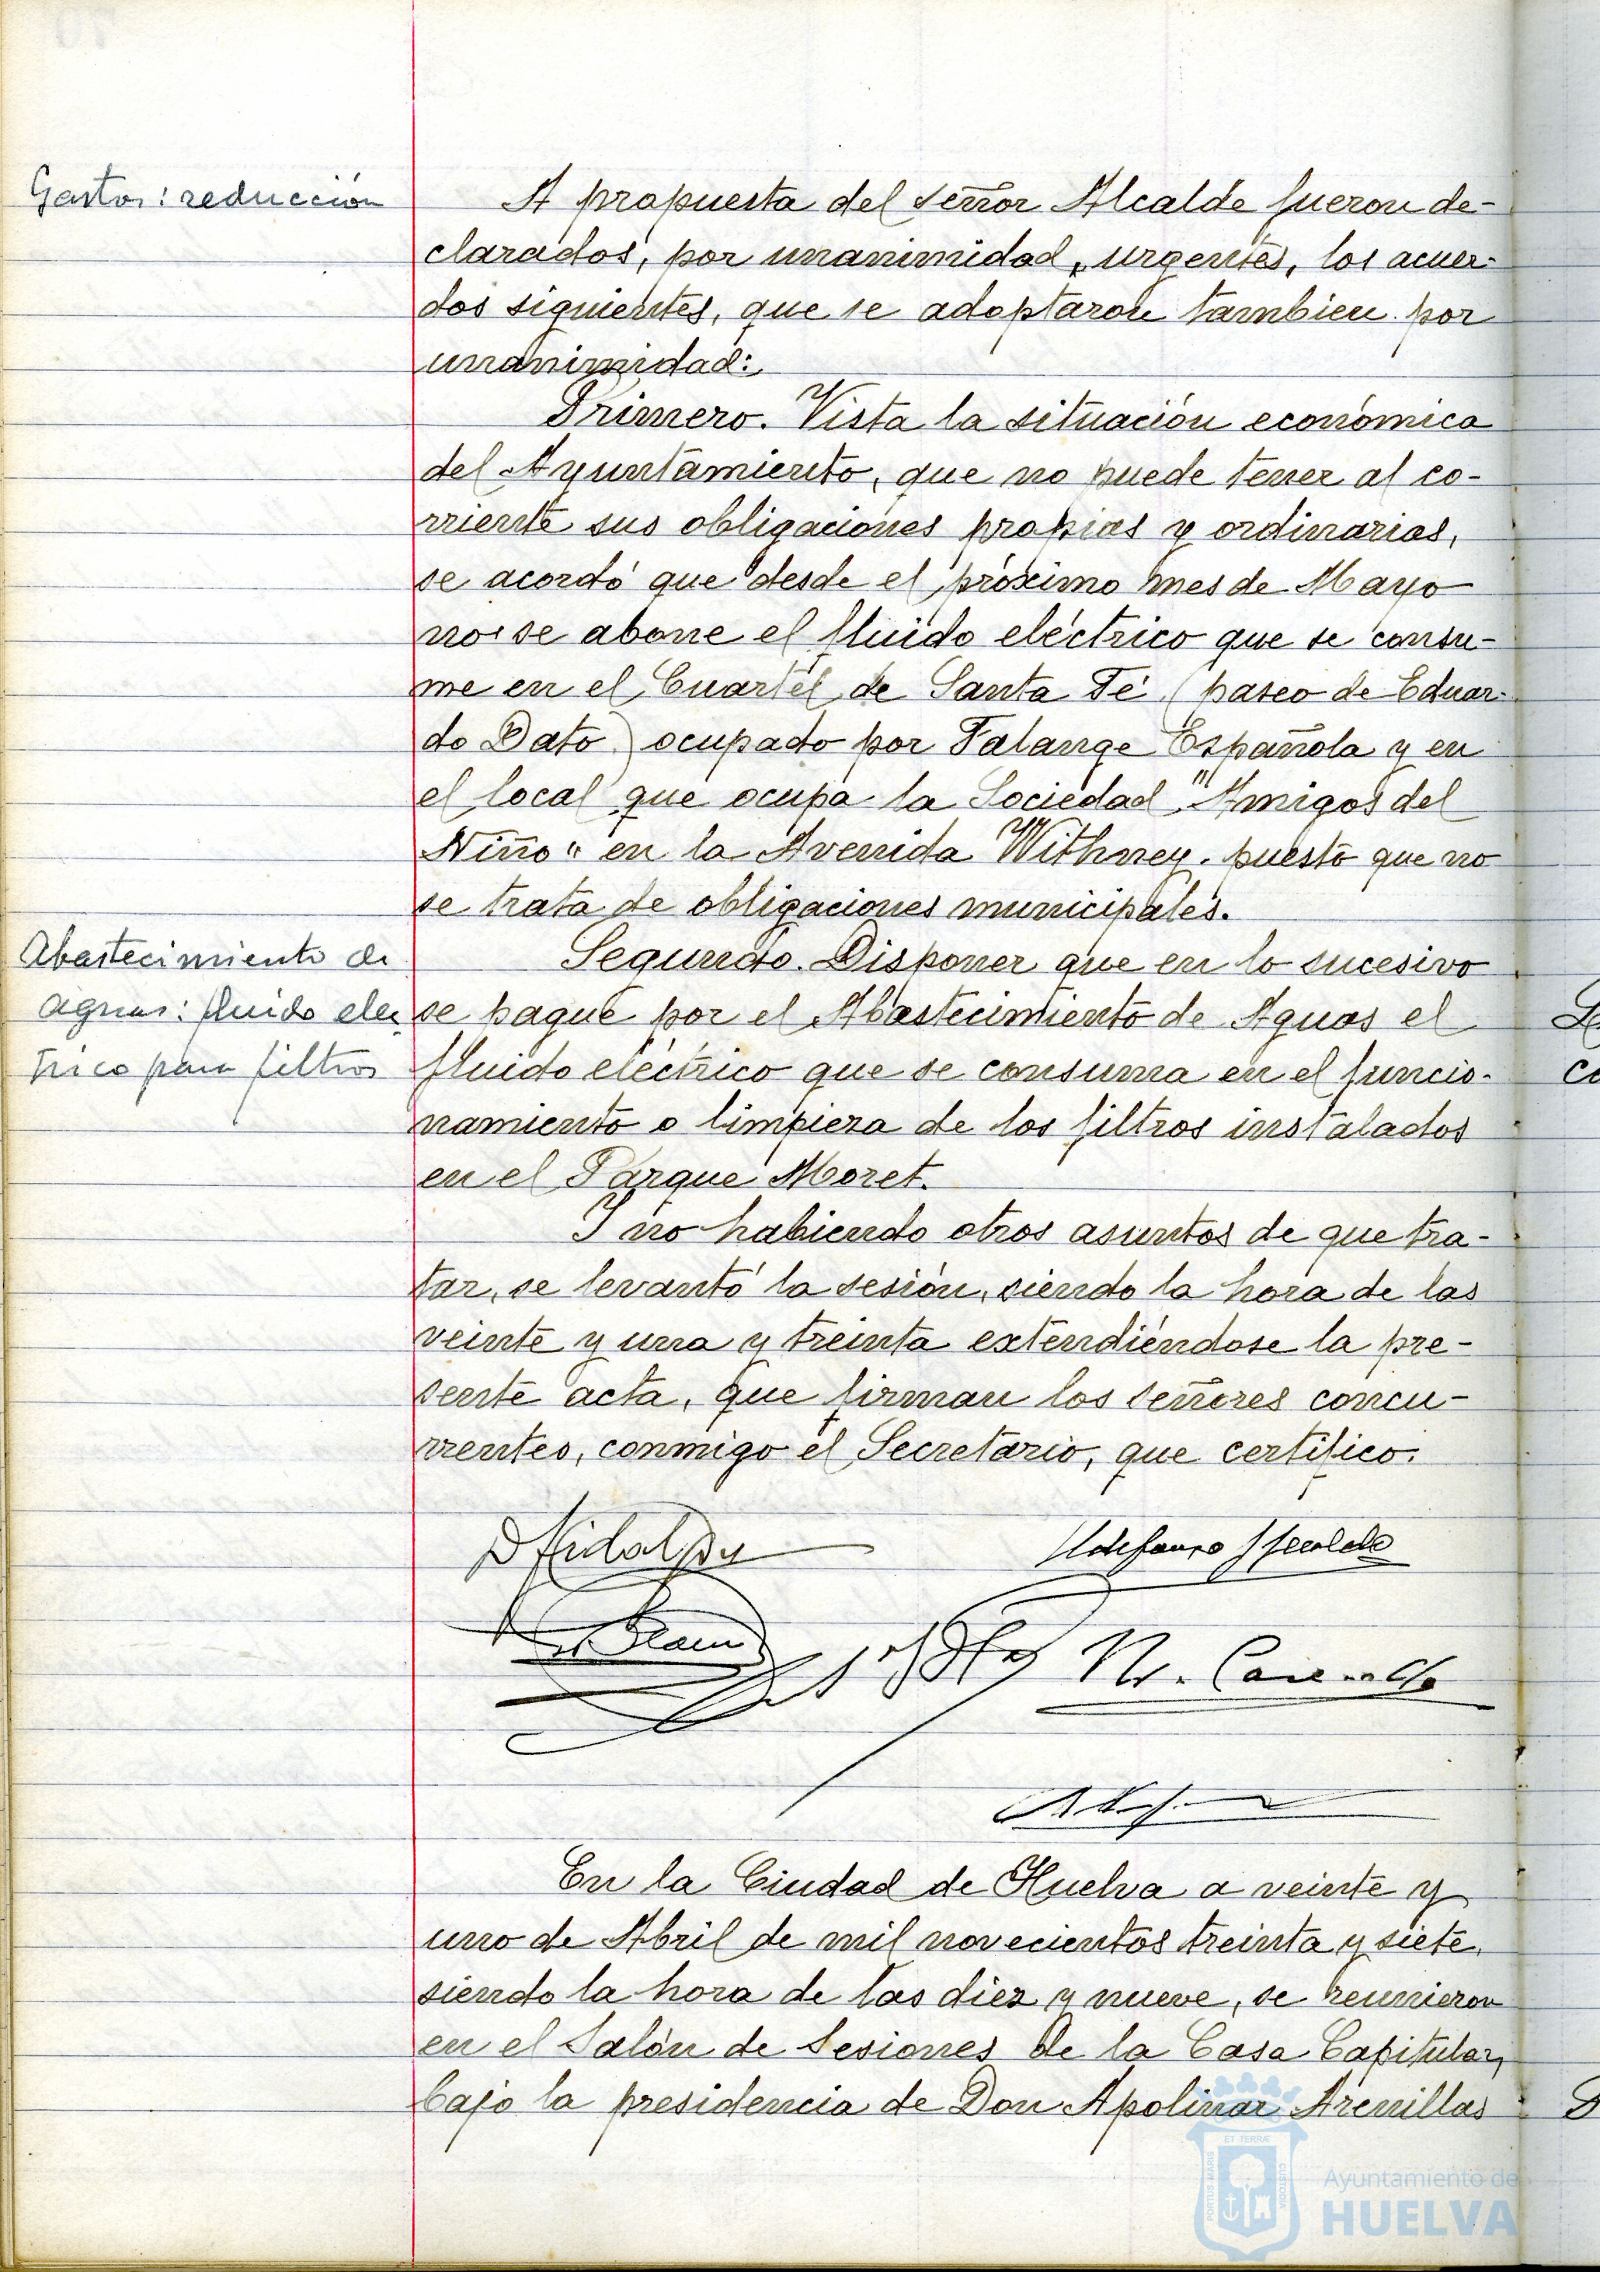 Gastos: reducción
A propuesta del señor Alcalde fueron de-
clarados, por unanimidad, urgentes, los acuer-
dos siguientes, que se adoptaron tambien por
unanimidad:
Primero. Vista la situación económica
del Ayuntamiento, que no puede tener al co-
rriente sus obligaciones propias y ordinarias,
se acordó que desde el próximo mes de Mayo
no se abone el fluido eléctrico que se consu-
me en el Cuartel de Santa Fé (paseo de Eduar-
do Dato) ocupado por Falange Española y en
el local que ocupa la Sociedad "Amigos del
Niño" en la Avenida Withney, puesto que no
se trata de obligaciones municipales.
Abastecimiento de
aguas: fluido elec
trico para filtros
Segundo. Disponer que en lo sucesivo
se pague por el Abastecimiento de Aguas el
fluido eléctrico que se consuma en el funcio-
namiento o limpieza de los filtros instalados
en el Parque Moret.
Y no habiendo otros asuntos de que tra-
tar, se levantó la sesión, siendo la hora de las
veinte y una y treinta extendiéndose la pre-
sente acta, que firman los señores concu-
rrentes, conmigo el Secretario, que certifico.
En la Ciudad de Huelva a veinte y
uno de Abril de mil novecientos treinta y siete,
siendo la hora de las diez y nueve, se reunieron
en el Salón de Sesiones de la Casa Capitular,
bajo la presidencia de Don Apolinar Arenillas
PORTUS MARIS
ET TERRÆ
CUSTODIA
Ayuntamiento de
HUELVA